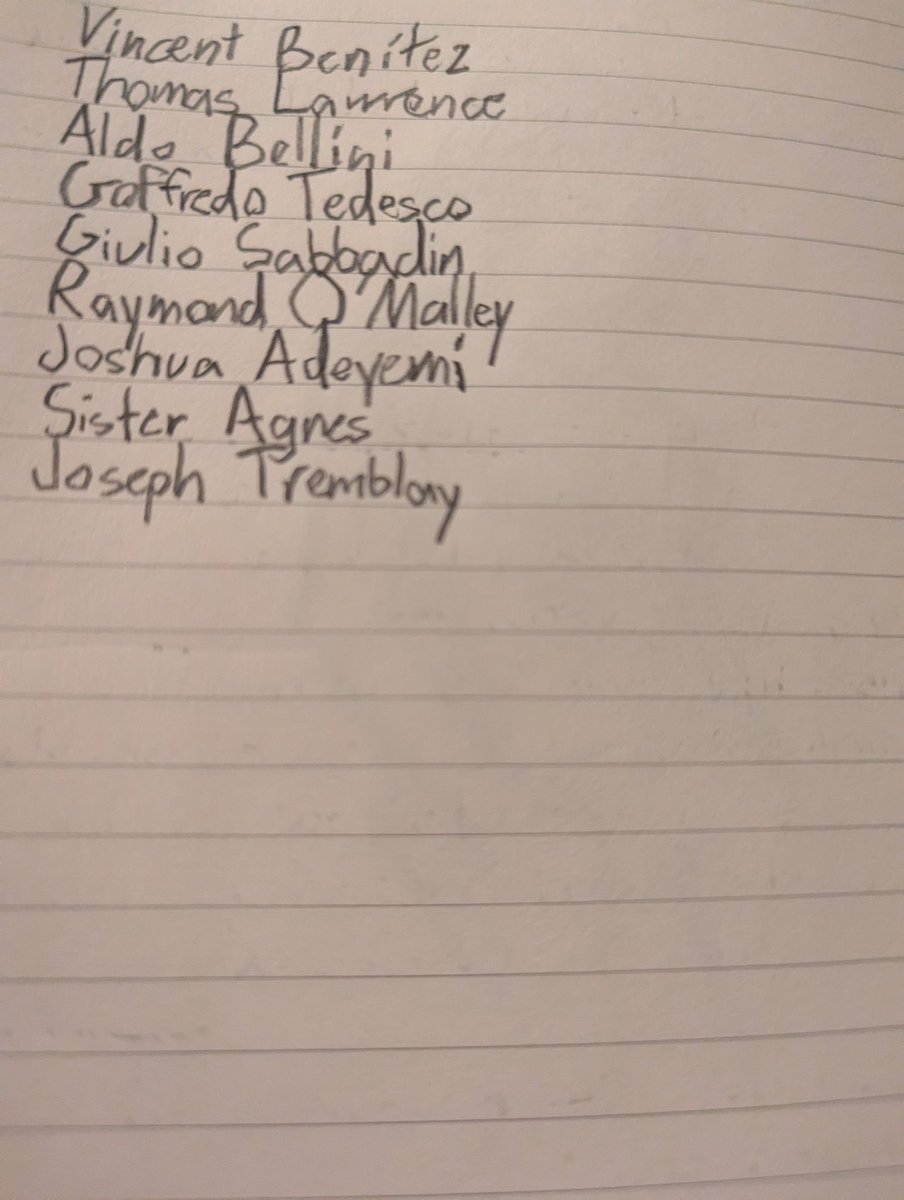 Vincent Benítez
Thomas Lawrence
Aldo Bellini
Goffredo Tedesco
Giulio Sabbadin
Raymond O'Malley
Joshua Adeyemi
Sister Agnes
Joseph Tremblay